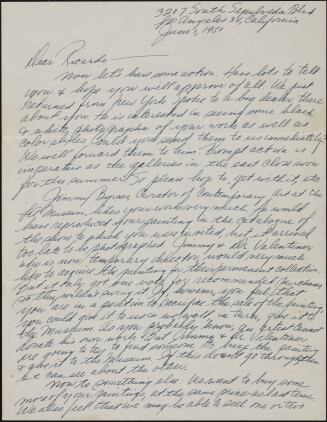 3207 South Sepulveda Blvd
Los Angeles 34, California
June 1, 1951
Dear Ricardo—
Now let's have some action. Have lots to tell
you & hope you will approve of all. We just
returned from New York. Spoke to a big dealer there
about you. He is interested in seeing some black
& white photographs of your work as well as
color slides. Could you send them to us immediately?
We will forward them to him. Prompt action is
imperative as the galleries in the east close soon
for the summer. So please hop to get with it etc.
Jimmy Byrnes, Curator of Contemporary Art at the
Museum, likes your work very much. He would
have reproduced your painting in the catalogue of
the show to which you were invited, but it arrived
too late to be photographed. Jimmy & Dr. Valentiner
who is now temporary director, would very much
like to acquire the painting for the permanent collection
but it only got one vote for recommended purchase
so they wouldn't buy it. However, you feel that
you are in a position to sacrifice the sale of the painting
you could give it to us & we will, in turn, give it to
the Museum. As you probably know, an artist cannot
donate his own work. But Jimmy & Dr. Valentiner
are going to try to find someone to buy the painting
& give it to the Museum. If this doesn't go through then
we can see about the other.
Now to something else. We want to buy some
more of your paintings, at the same price as last time.
We also feel that we may be able to sell one or two